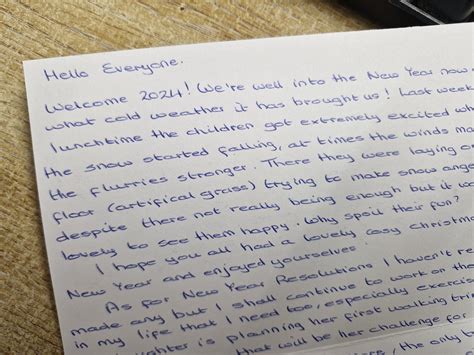 Hello Everyone.
Welcome 2024! We're well into the New Year now
what cold weather it has brought us! Last week
lunchtime the children got extremely excited w
the snow started falling, at times the winds m
the flurries stronger. There they were laying o
floor (artifical grass) trying to make snow ang
despite there not really being enough but it w
lovely to see them happy. Why spoil their fun?
I hope you all had a lovely cosy Christm
New Year and enjoyed yourselves.
As for New Year Resolutions I haven't re
made any but I shall continue to work on th
in my life that I need too, especially exerci
ughter is planning her first walking tr
that will be her challenge for
, the only